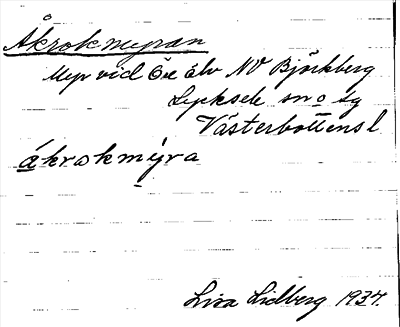 Åkrokmyran
Myr vid Öre älv NV Björkberg
Lycksele sn o sg
Västerbottens l
åkrokmýra
Lisa Lidberg 1937.